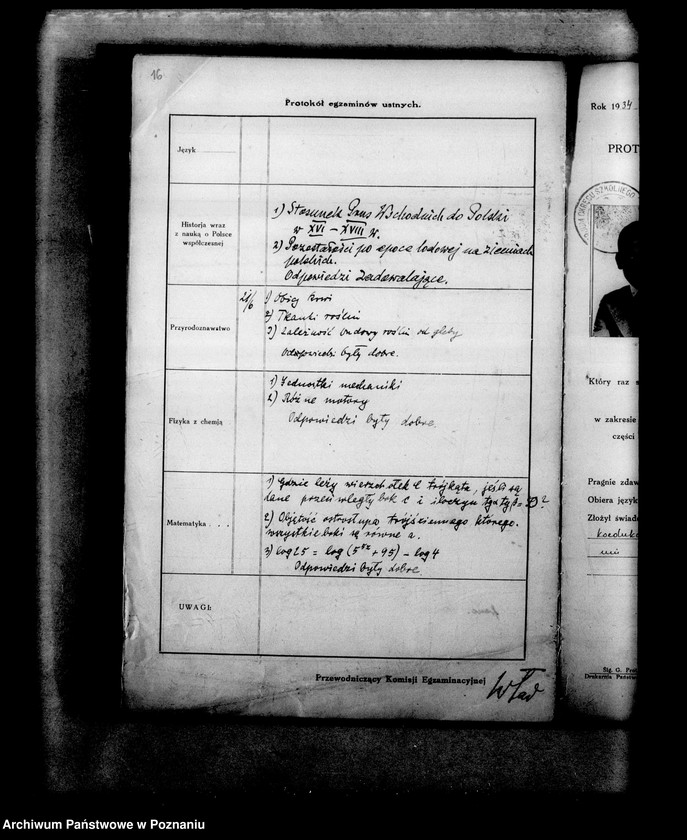 16
Protokół egzaminów ustnych.
Język
Historja wraz
z nauką o Polsce
współczesnej
1) Stosunek Państw Wschodnich do Polski
w XVI – XVIII w.
2) Pozostałości po epoce lodowej na ziemiach
polskich.
Odpowiedzi zadowalające.
Przyrodoznawstwo
21/6
1) Obieg krwi
2) Tkanki roślin
3) zależność budowy roślin od gleby
Odpowiedzi były dobre.
Fizyka z chemją
1) Jednostki mechaniki
2) Różne motory
Odpowiedzi były dobre.
Matematyka . . .
1) Gdzie leży wierzchołek C trójkąta, jeśli są
dane przeciwległy bok c i iloczyn tgα tgβ =
2) Objętość ostrosłupa trójściennego którego
wszystkie boki są równe a.
3) log 25 = log (5 + 95) – log 4
Odpowiedzi były dobre.
UWAGI:
Przewodniczący Komisji Egzaminacyjnej
Rok 1934
PROT
OKRĘGU SZKOLNEGO
Który raz s
w zakresie
części
Pragnie zdaw
Obiera język
Złożył świade
Sig. G. Prot
Drukarnia Państwo
Archiwum Państwowe w Poznaniu